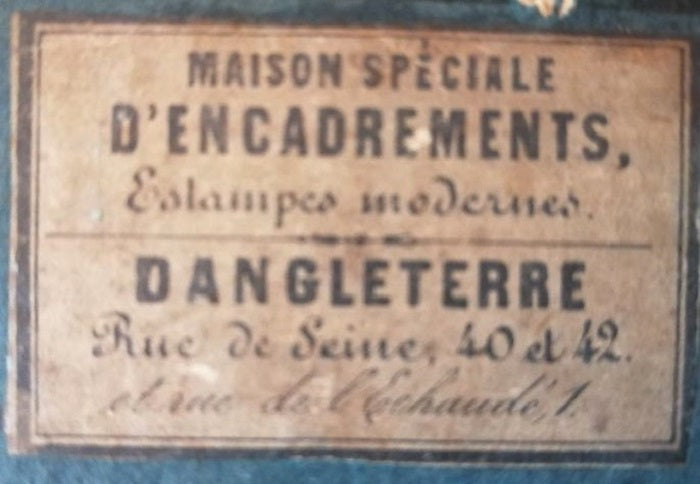 MAISON SPÉCIALE
D'ENCADREMENTS,
Estampes modernes.
DANGLETERRE
Rue de Seine, 40 et 42.
et rue de l'Echaudé, 1.